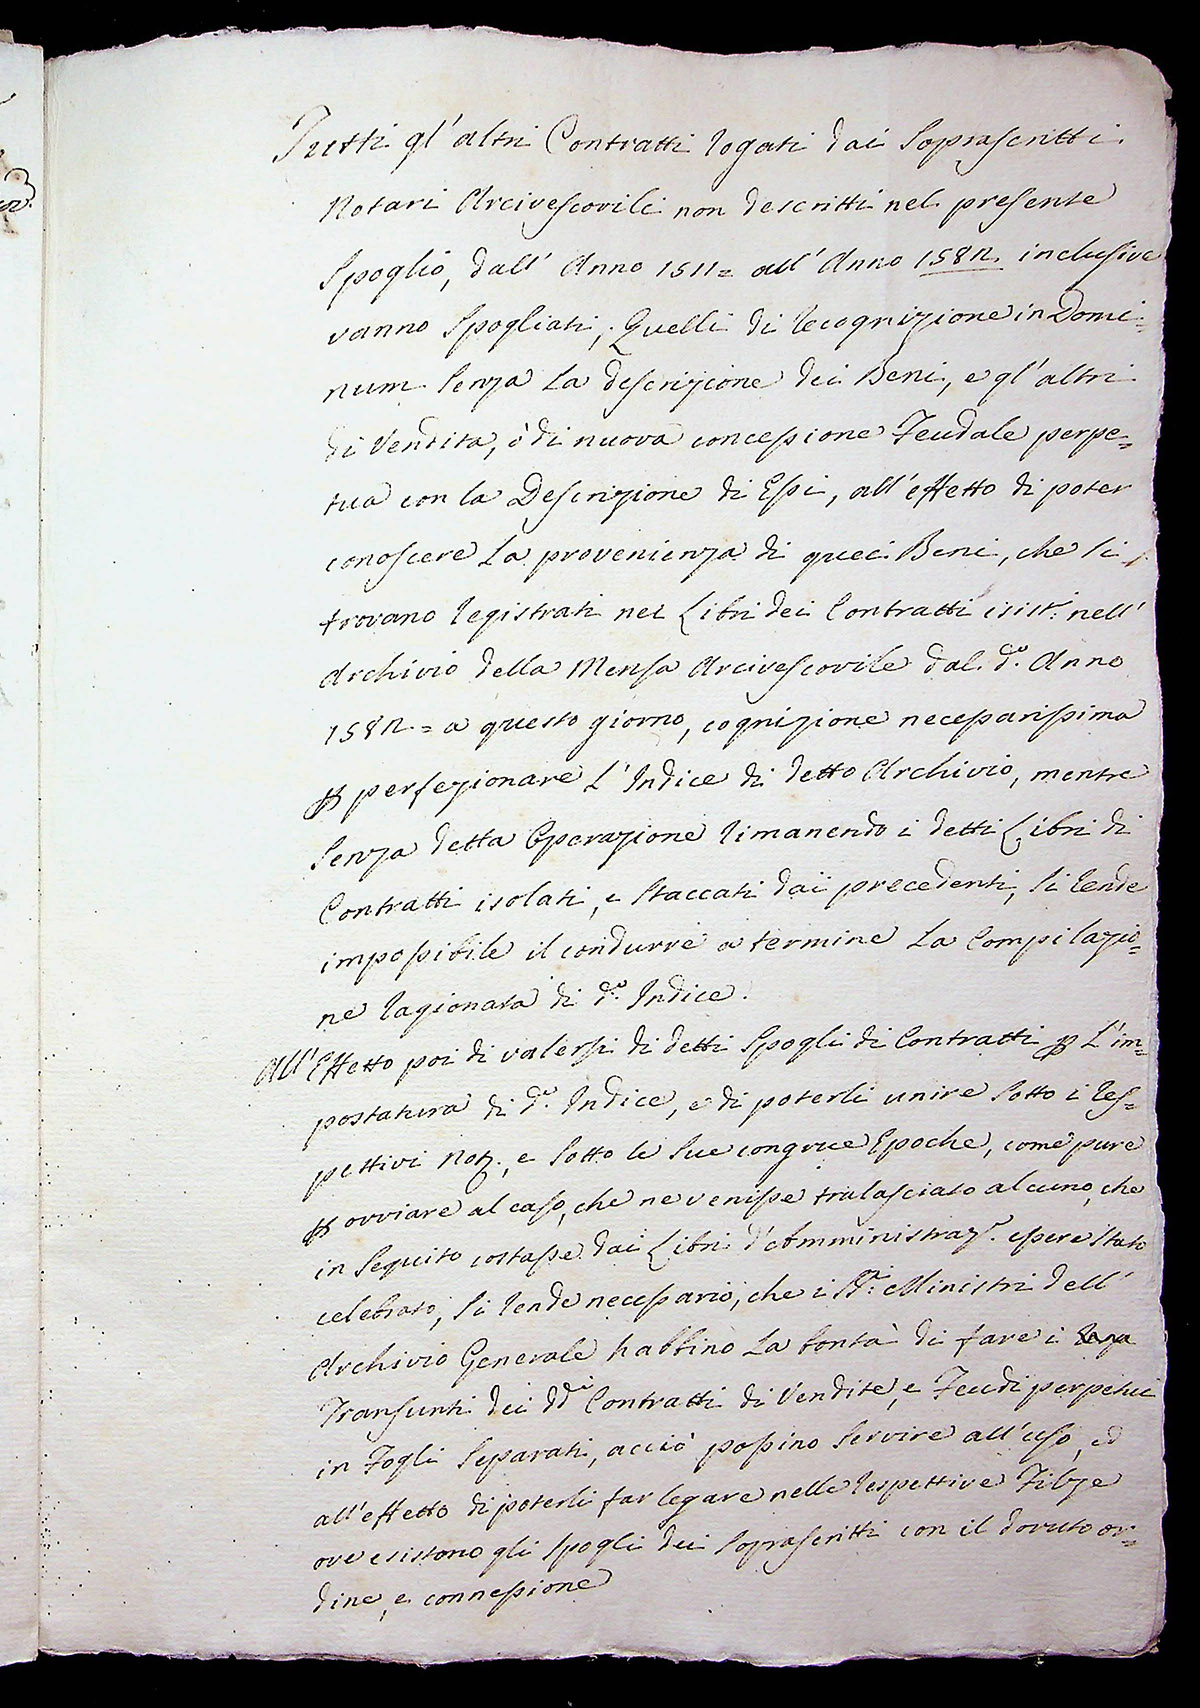 Tutti gl'altri Contratti rogati dai Soprascritti
Notari Arcivescovili non descritti nel presente
Spoglio, dall' Anno 1511= all' Anno 1582. inclusive
vanno Spogliati, Quelli di recognizione in Domi-
num senza la descrizione dei Beni, e gl'altri
di Vendita, ò di nuova concessione Feudale perpe=
tua con la Descrizione di Essi, all'effetto di poter
conoscere la provenienza di quei Beni, che si
trovano registrati nei Libri dei Contratti esist.ti nell'
Archivio della Mensa Arcivescovile dal d.o Anno
1582.= a questo giorno, cognizione necessarissima
p perfezionare l'Indice di detto Archivio, mentre
senza detta Operazione rimanendo i detti Libri di
Contratti isolati, e staccati dai precedenti, si rende
impossibile il condurre a termine la Compilazio=
ne ragionata di d.o Indice.
All'Effetto poi di valersi di detti Spogli di Contratti p l'im=
postatura di d.o Indice, e di poterli unire sotto i res=
pettivi Not., e sotto le sue congrue Epoche, come pure
p ovviare al caso, che ne venisse tralasciato alcuno, che
in seguito costasse dai Libri d'Amministraz.e essere stato
celebrato, si rende necessario, che i SS.ri Ministri dell'
Archivio Generale habbino la bontà di fare i
Transunti dei dd.i Contratti di Vendite, e Feudi perpetui
in Fogli separati, acciò possino servire all'uso, ed
all'effetto di poterli far legare nelle respettive Filze
ove esistono gli Spogli dei Soprascritti con il dovuto or=
dine, e connessione